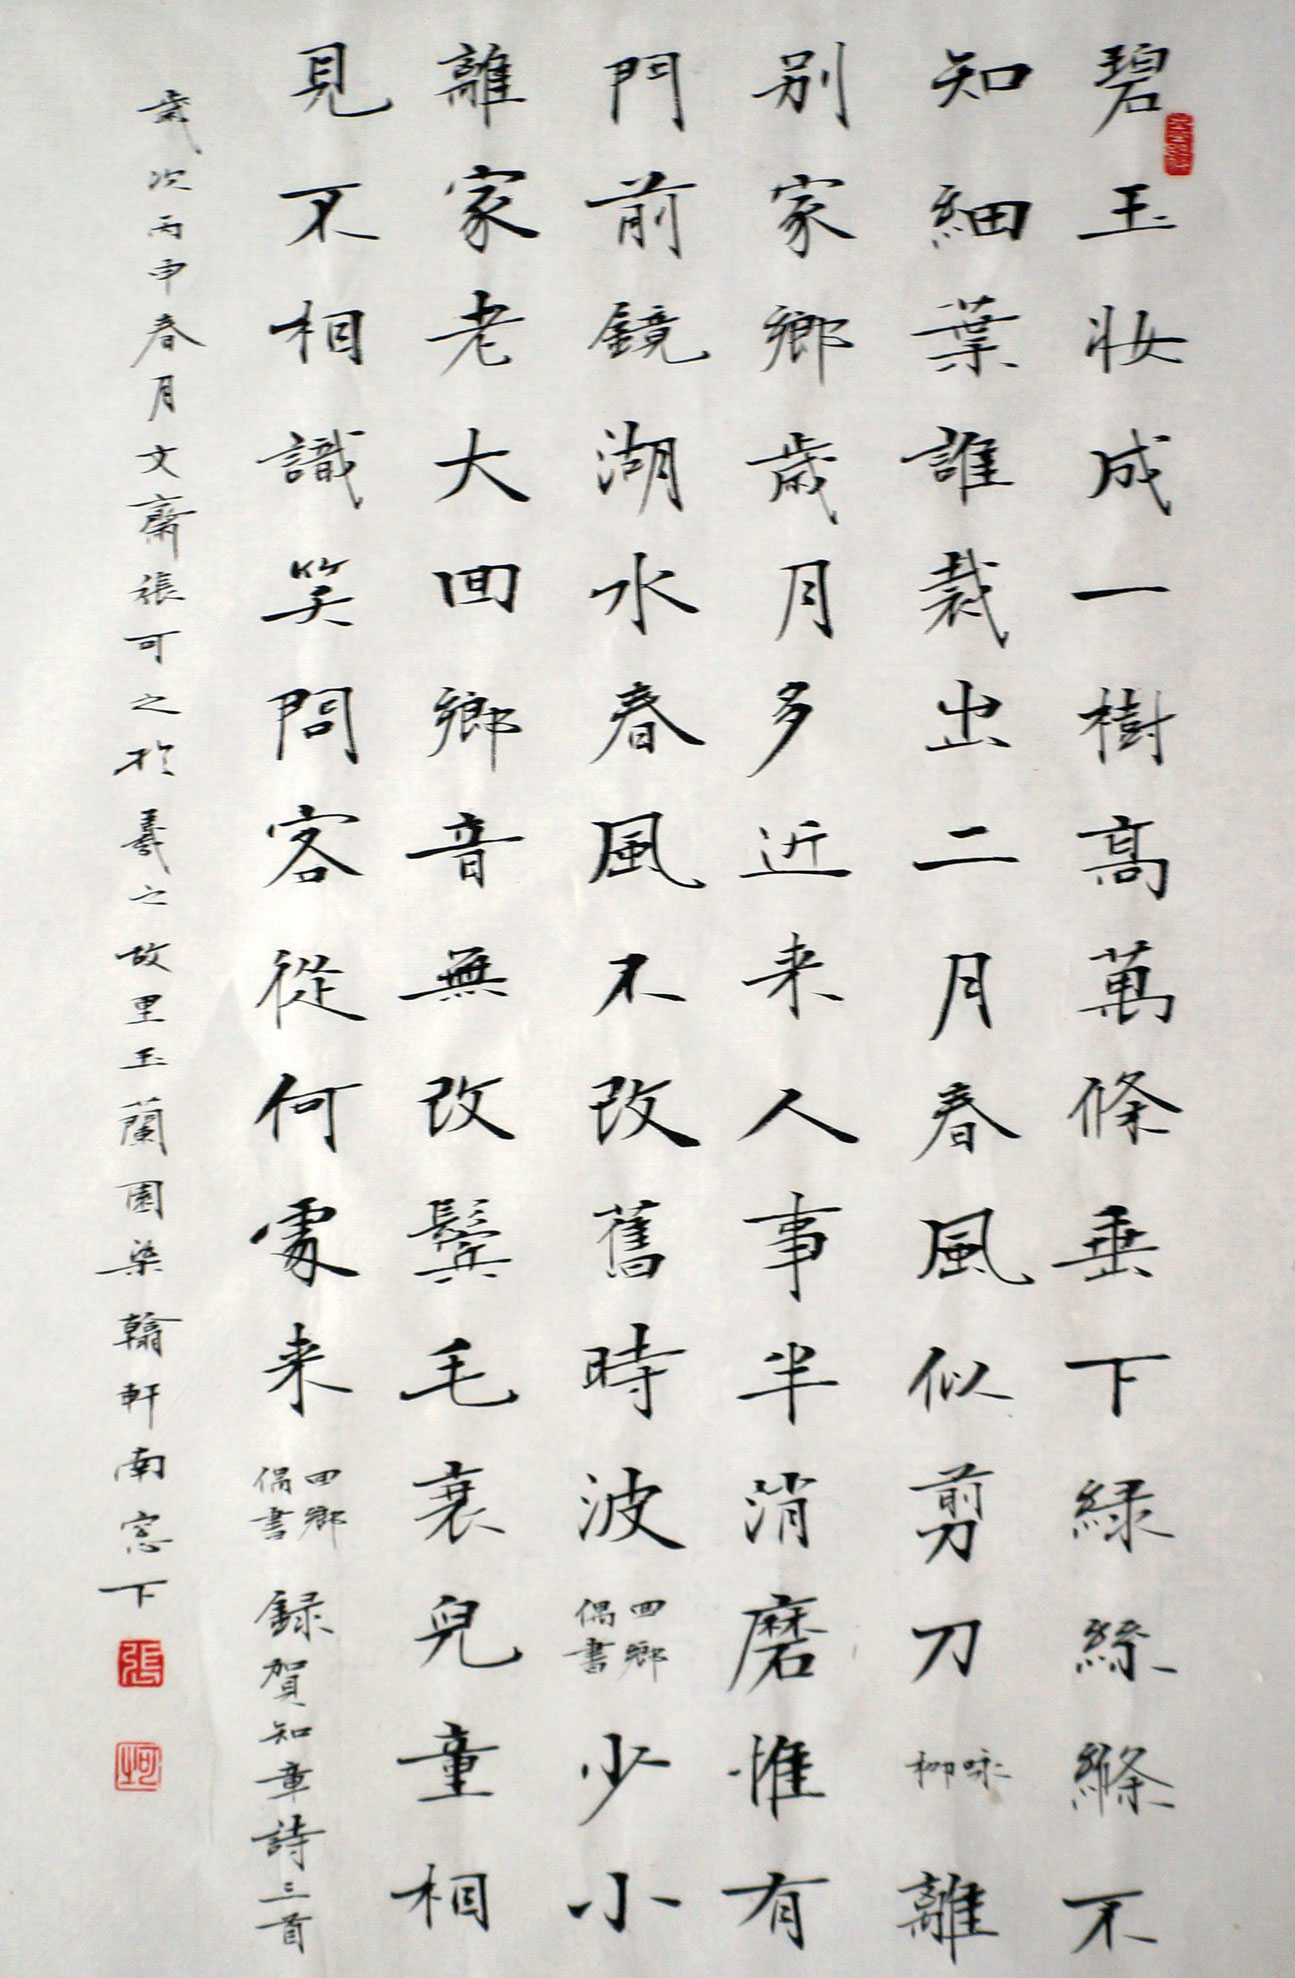 碧玉妝成一樹高萬條垂下緑絲縧不
知細葉誰裁出二月春風似剪刀 咏柳 離
别家鄉歲月多近来人事半消磨惟有
門前鏡湖水春風不改舊時波 回鄉偶書 少小
離家老大回鄉音無改鬢毛衰兒童相
見不相識笑問客從何處来 回鄉偶書 録賀知章詩三首
歲次丙申春月文齋張可之於羲之故里玉蘭園染翰軒南窓下
張